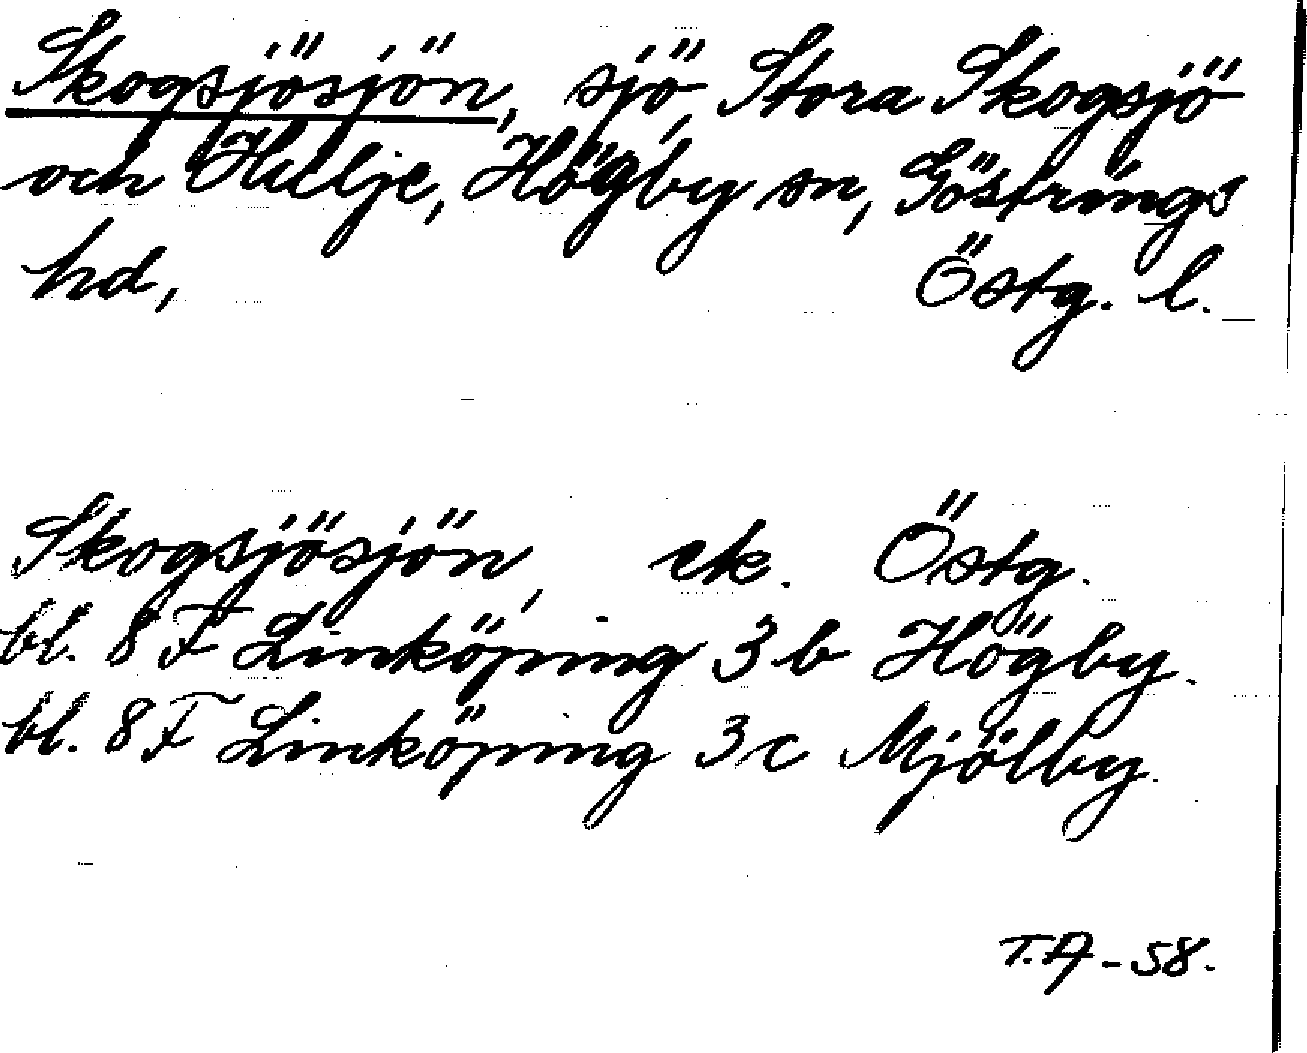 Skogsjösjön, sjö, Stora Skogsjö
och Hulje, Högby sn, Göstrings
hd, Östg. l.
Skogsjösjön, ek. Östg.
bl. 8 F Linköping 3 b Högby.
bl. 8 F Linköping 3 c Mjölby.
T.A - 58.